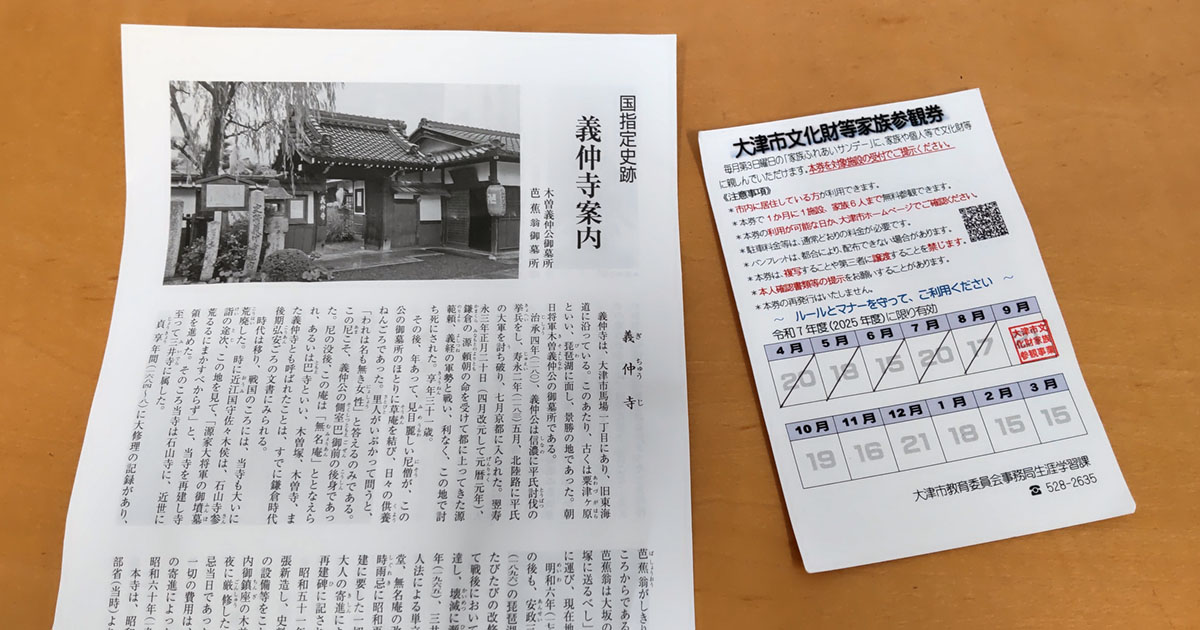 国指定史跡
義仲寺案内
木曽義仲公御墓所
芭蕉翁御墓所
義仲寺
義仲寺は、大津市馬場一丁目にあり、旧東海
道に沿っている。このあたり、古くは粟津ヶ原
といい、琵琶湖に面し、景勝の地であった。朝
日将軍木曽義仲公の御墓所である。
治承四年(一一八〇)、義仲公は信濃に平氏討伐の
挙兵をし、寿永二年(一一八三)五月、北陸路に平氏
の大軍を討ち破り、七月京都に入られた。翌寿
永三年正月二十日(四月改元して元暦元年)、
鎌倉の源頼朝の命を受けて都に上ってきた源
範頼、義経の軍勢と戦い、利なく、この地で討
ち死にされた。享年三十一歳。
その後、年あって、見目麗しい尼僧が、この
公の御墓所のほとりに草庵を結び、日々の供養
ねんごろであった。里人がいぶかって問うと、
「われは名も無き女性」と答えるのみである。
この尼こそ、義仲公の側室巴御前の後身であっ
た。尼の没後、この庵は「無名庵」ととなえら
れ、あるいは巴寺といい、木曽塚、木曽寺、ま
た義仲寺とも呼ばれたことは、すでに鎌倉時代
後期弘安ごろの文書にみられる。
時代は移り、戦国のころには、当寺も大いに
荒廃した。時に近江国守佐々木侯は、石山寺参
詣の途次、この地を見て、「源家大将軍の御墳墓
荒るるにまかすべからず」と、当寺を再建し寺
領を進めた。そのころ当寺は石山寺に、近世に
至って三井寺に属した。
貞享年間(一六八四〜八八)に大修理の記録があり、
芭蕉翁がしきり
ころからである
芭蕉翁は大坂の
塚に送るべし」
に運び、現在地
明和六年(一七
の後も、安政三
(一八九六)の琵琶湖
たびたびの改修
て戦後において
達し、壊滅に瀕
年(一九六五)、三井
人法による単立
堂、無名庵の改
時雨忌に昭和再
建に要した一切
大人の寄進によ
再建碑に記さ
昭和五十一年
張新造し、史
の設備等をこ
内御鎮座の木
夜に厳修した
忌当日であっ
一切の費用は、
の寄進によっ
昭和六十年(一
本寺は、昭和
部省(当時)よ
大津市文化財等家族参観券
毎月第3日曜日の「家族ふれあいサンデー」に、家族や個人等で文化財等
に親しんでいただけます。本券を対象施設の受付でご提示ください。
《注意事項》
*市内に居住している方が利用できます。
*本券で1か月に1施設、家族6人まで無料参観できます。
*本券の利用が可能な日か、大津市ホームページでご確認ください。
*駐車料金等は、通常どおりの料金が必要です。
*パンフレットは、都合により、配布できない場合があります。
*本券は、複写することや第三者に譲渡することを禁じます。
*本人確認書類等の提示をお願いすることがあります。
*本券の再発行はいたしません。
〜 ルールとマナーを守って、ご利用ください 〜
令和7年度(2025年度)に限り有効
4月 5月 6月 7月 8月 9月
20 18 15 20 17
大津市文
化財家族
参観事業
10月 11月 12月 1月 2月 3月
19 16 21 18 15 15
大津市教育委員会事務局生涯学習課
☎ 528-2635